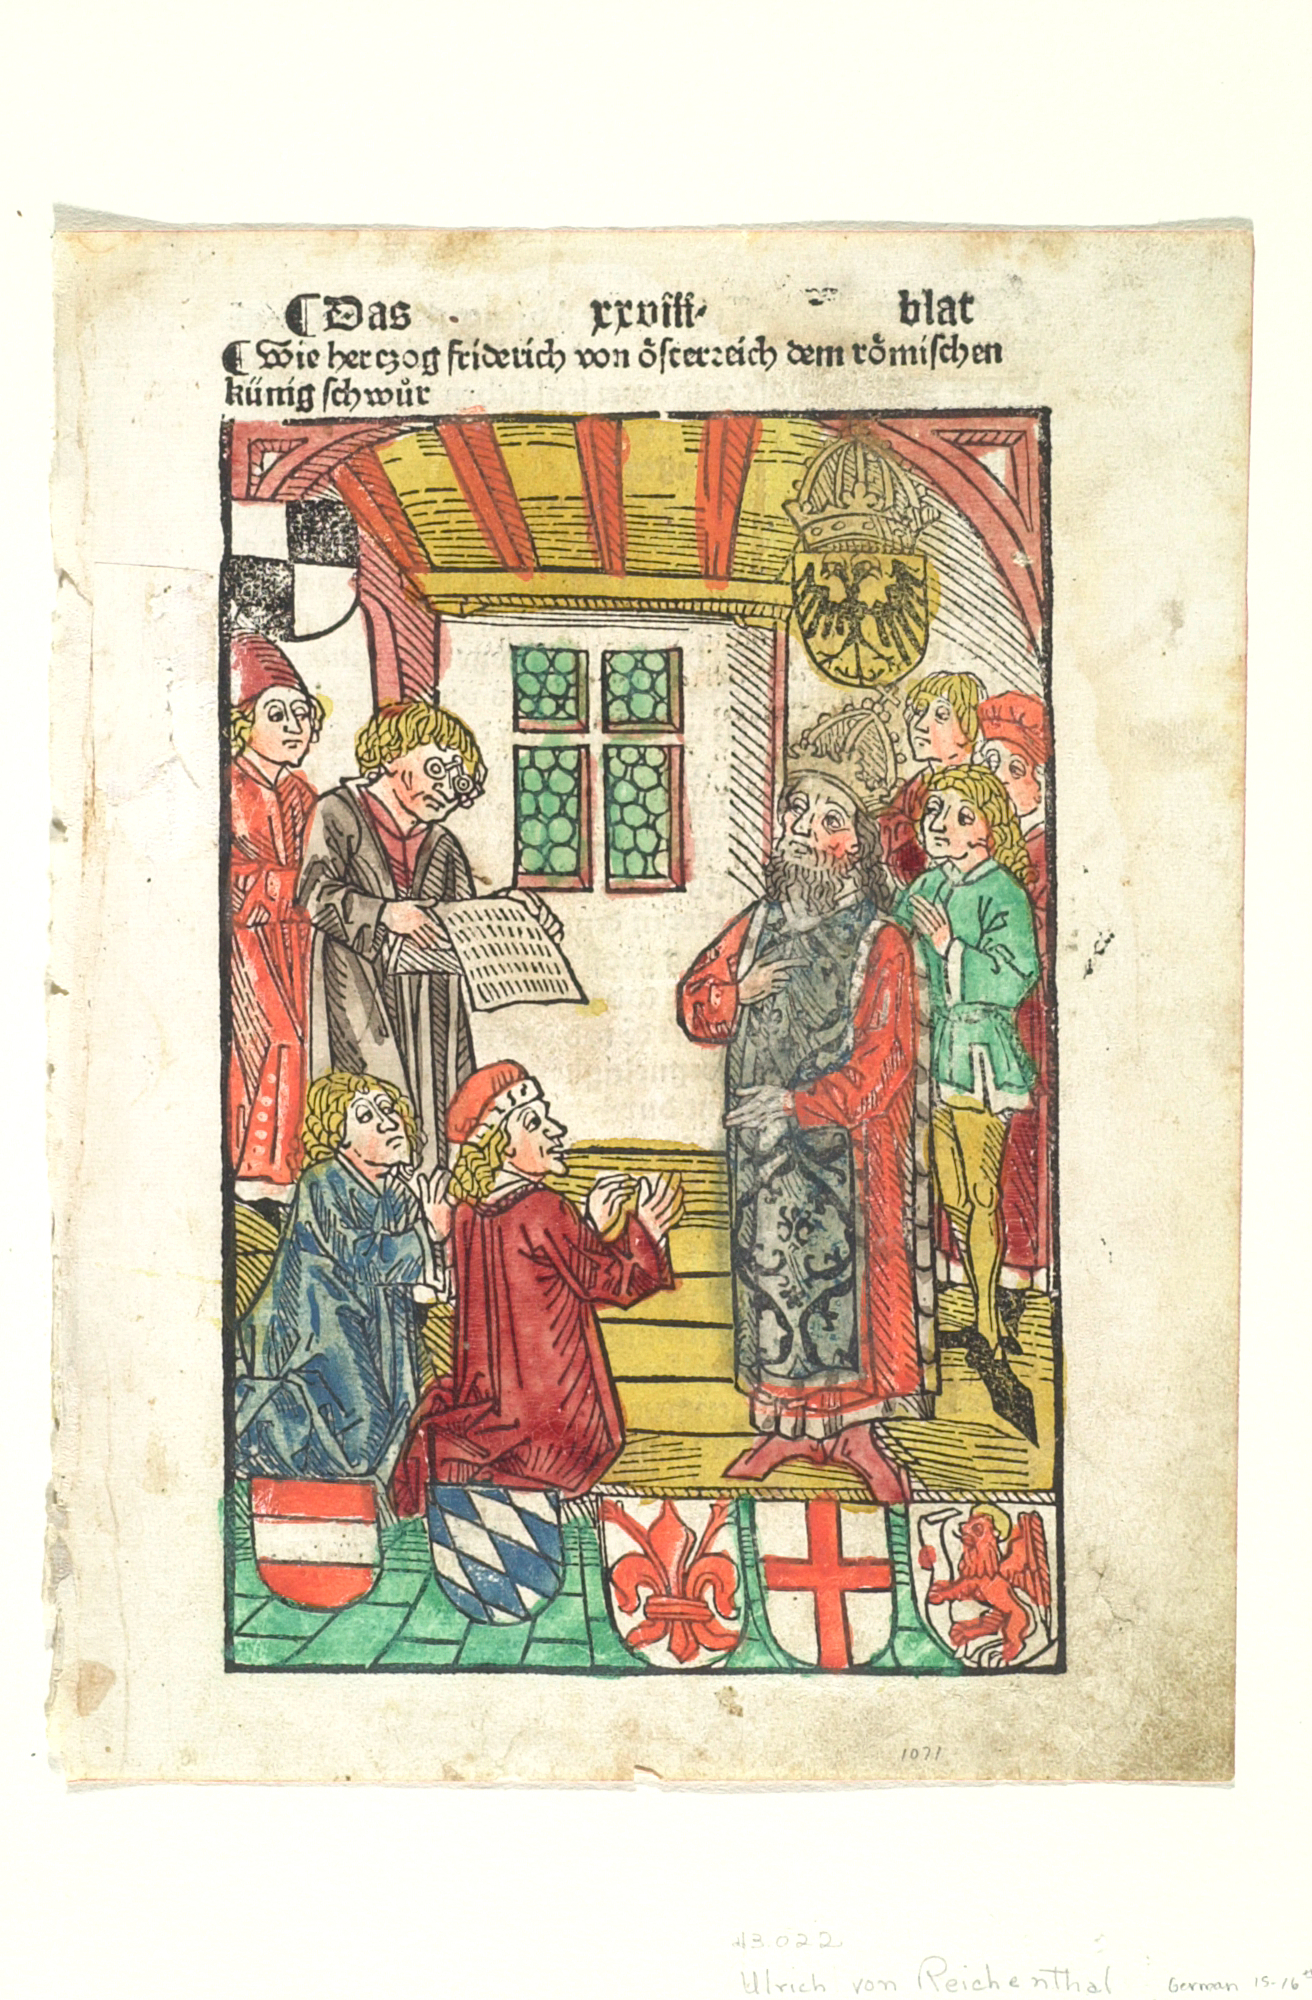 ¶ Das xxviii· blat
¶ Wie herczog friderich von österreich dem römischen
künig schwůr
1071
43.022
Ulrich von Reichenthal German 15-16